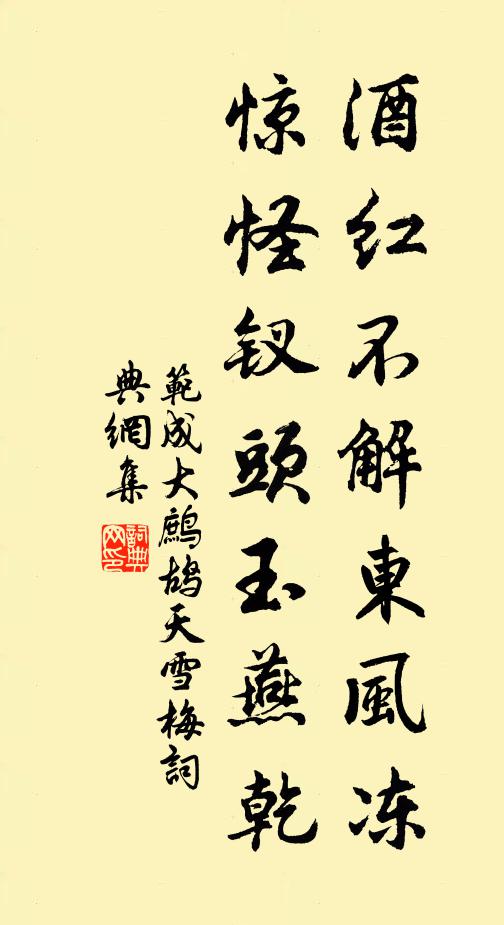 酒红不解東風冻
惊怪钗頭玉燕乾
範成大鷓鴣天雪梅詞
典網集
詞典网印